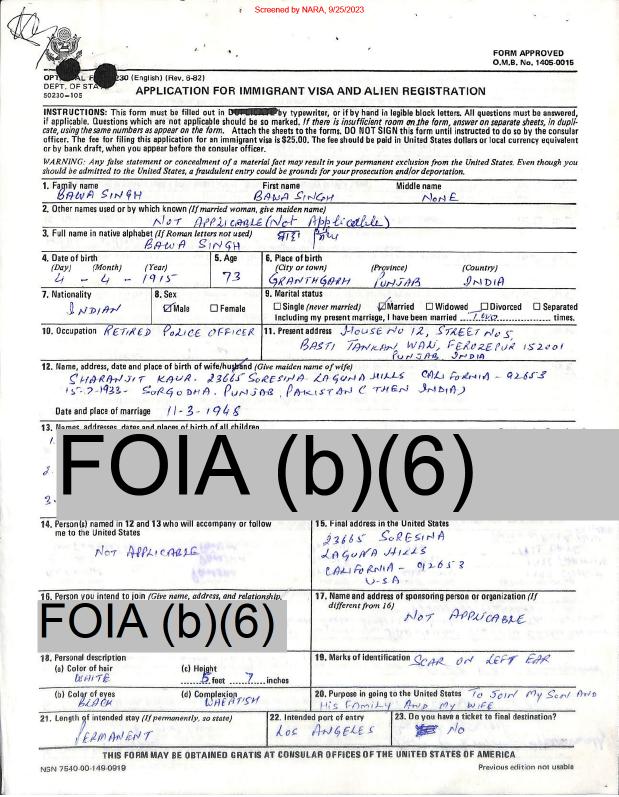 Screened by NARA, 9/25/2023
FORM APPROVED
O.M.B. No. 1405-0015
OPTIONAL F 230 (English) (Rev. 6-82)
DEPT. OF STATE
50230-105
APPLICATION FOR IMMIGRANT VISA AND ALIEN REGISTRATION
INSTRUCTIONS: This form must be filled out in by typewriter, or if by hand in legible block letters. All questions must be answered,
if applicable. Questions which are not applicable should be so marked. If there is insufficient room on the form, answer on separate sheets, in dupli-
cate, using the same numbers as appear on the form. Attach the sheets to the forms. DO NOT SIGN this form until instructed to do so by the consular
officer. The fee for filing this application for an immigrant visa is $25.00. The fee should be paid in United States dollars or local currency equivalent
or by bank draft, when you appear before the consular officer.
WARNING: Any false statement or concealment of a material fact may result in your permanent exclusion from the United States. Even though you
should be admitted to the United States, a fraudulent entry could be grounds for your prosecution and/or deportation.
1. Family name First name Middle name
BAWA SINGH BAWA SINGH NONE
2. Other names used or by which known (If married woman, give maiden name)
NOT APPLICABLE (Not Applicable)
3. Full name in native alphabet (If Roman letters not used)
BAWA SINGH
4. Date of birth 5. Age 6. Place of birth
(Day) (Month) (Year) (City or town) (Province) (Country)
4 - 4 - 1915 73 GRANTHGARH PUNJAB INDIA
7. Nationality 8. Sex 9. Marital status
INDIAN Male Female Single (never married) Married Widowed Divorced Separated
Including my present marriage, I have been married Two times.
10. Occupation RETIRED POLICE OFFICER 11. Present address HOUSE NO 12, STREET NO 5,
BASTI TANKAN WALI, FEROZEPUR 152001
PUNJAB, INDIA
12. Name, address, date and place of birth of wife/husband (Give maiden name of wife)
SHARANJIT KAUR. 23665 SORESINA LAGUNA HILLS CALIFORNIA - 92653
15-7-1933 - SORGODHA. PUNJAB, PAKISTAN (THEN INDIA)
Date and place of marriage 11-3-1948
13. Names, addresses, dates and places of birth of all children
1.
2.
3.
FOIA (b)(6)
14. Person(s) named in 12 and 13 who will accompany or follow
me to the United States
NOT APPLICABLE
15. Final address in the United States
23665 SORESINA
LAGUNA HILLS
CALIFORNIA - 92653
U-S.A
16. Person you intend to join (Give name, address, and relationship,
FOIA (b)(6)
17. Name and address of sponsoring person or organization (If
different from 16)
NOT APPLICABLE
18. Personal description
(a) Color of hair (c) Height
WHITE 5 feet 7 inches
(b) Color of eyes (d) Complexion
BLACK WHEATISH
19. Marks of identification SCAR ON LEFT EAR
20. Purpose in going to the United States TO JOIN MY SON AND
HIS FAMILY AND MY WIFE
21. Length of intended stay (If permanently, so state) 22. Intended port of entry 23. Do you have a ticket to final destination?
PERMANENT LOS ANGELES NO
THIS FORM MAY BE OBTAINED GRATIS AT CONSULAR OFFICES OF THE UNITED STATES OF AMERICA
NSN 7540-00-149-0919 Previous edition not usable